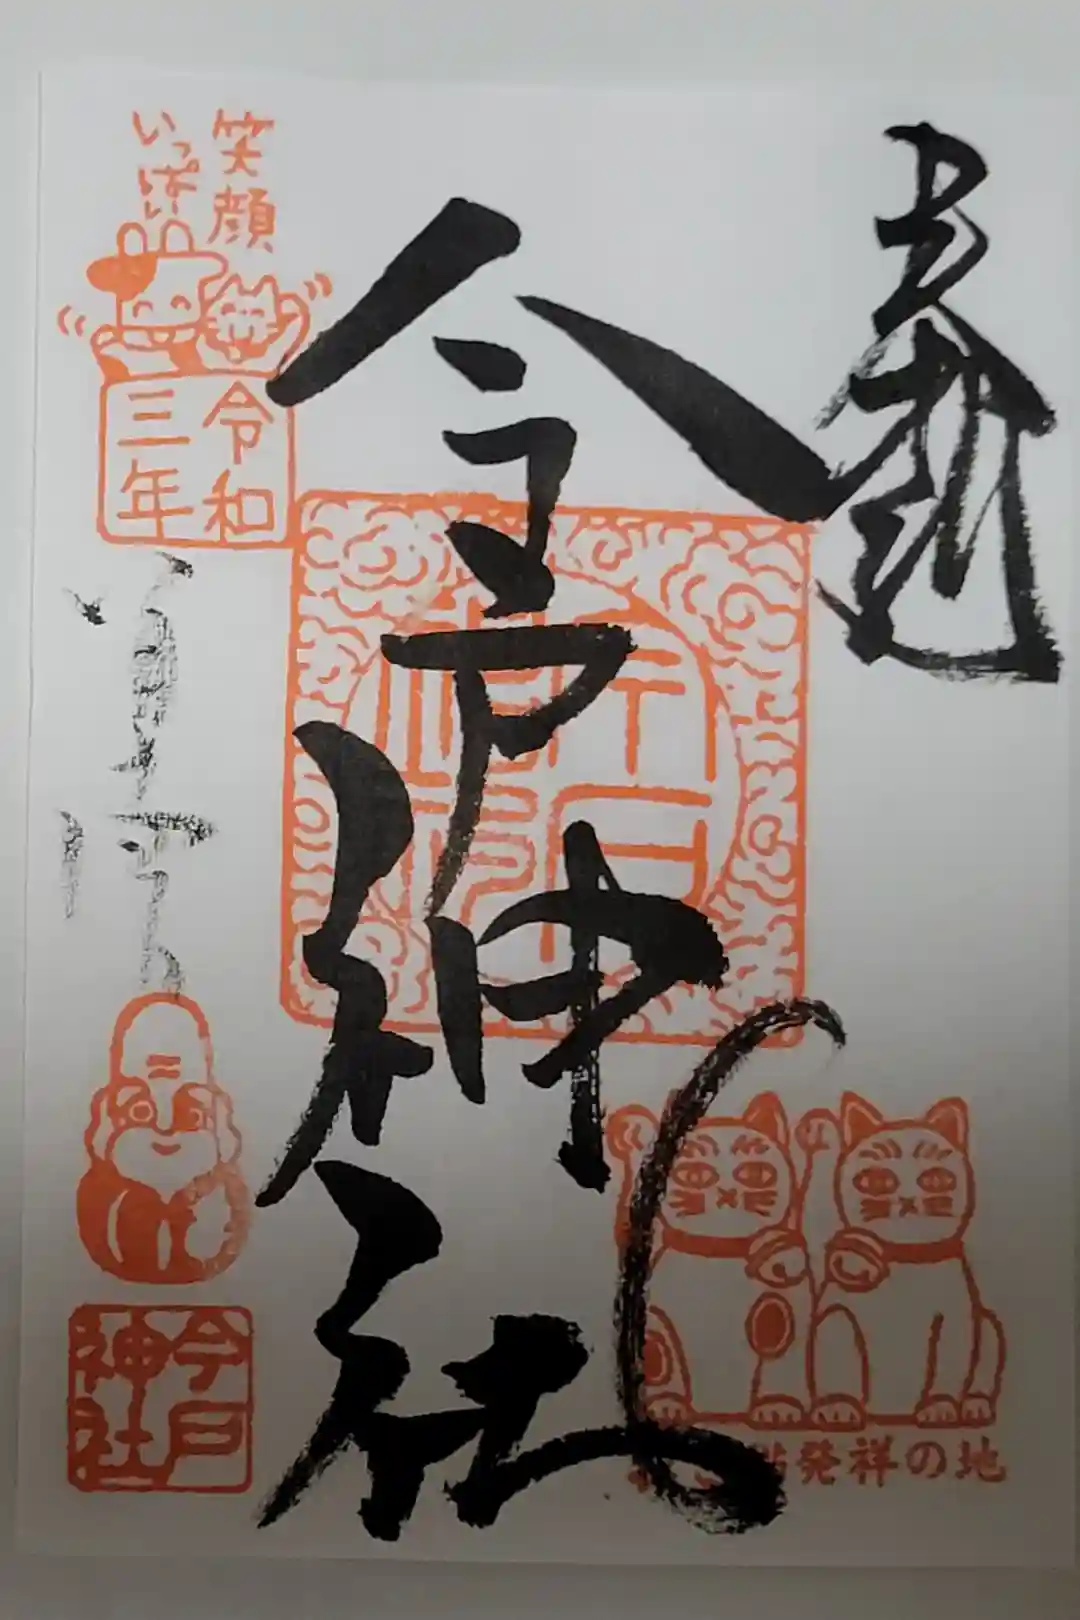 奉拝
今戸神社
笑顔
いっぱい
令和
三年
今戸
神社
発祥の地